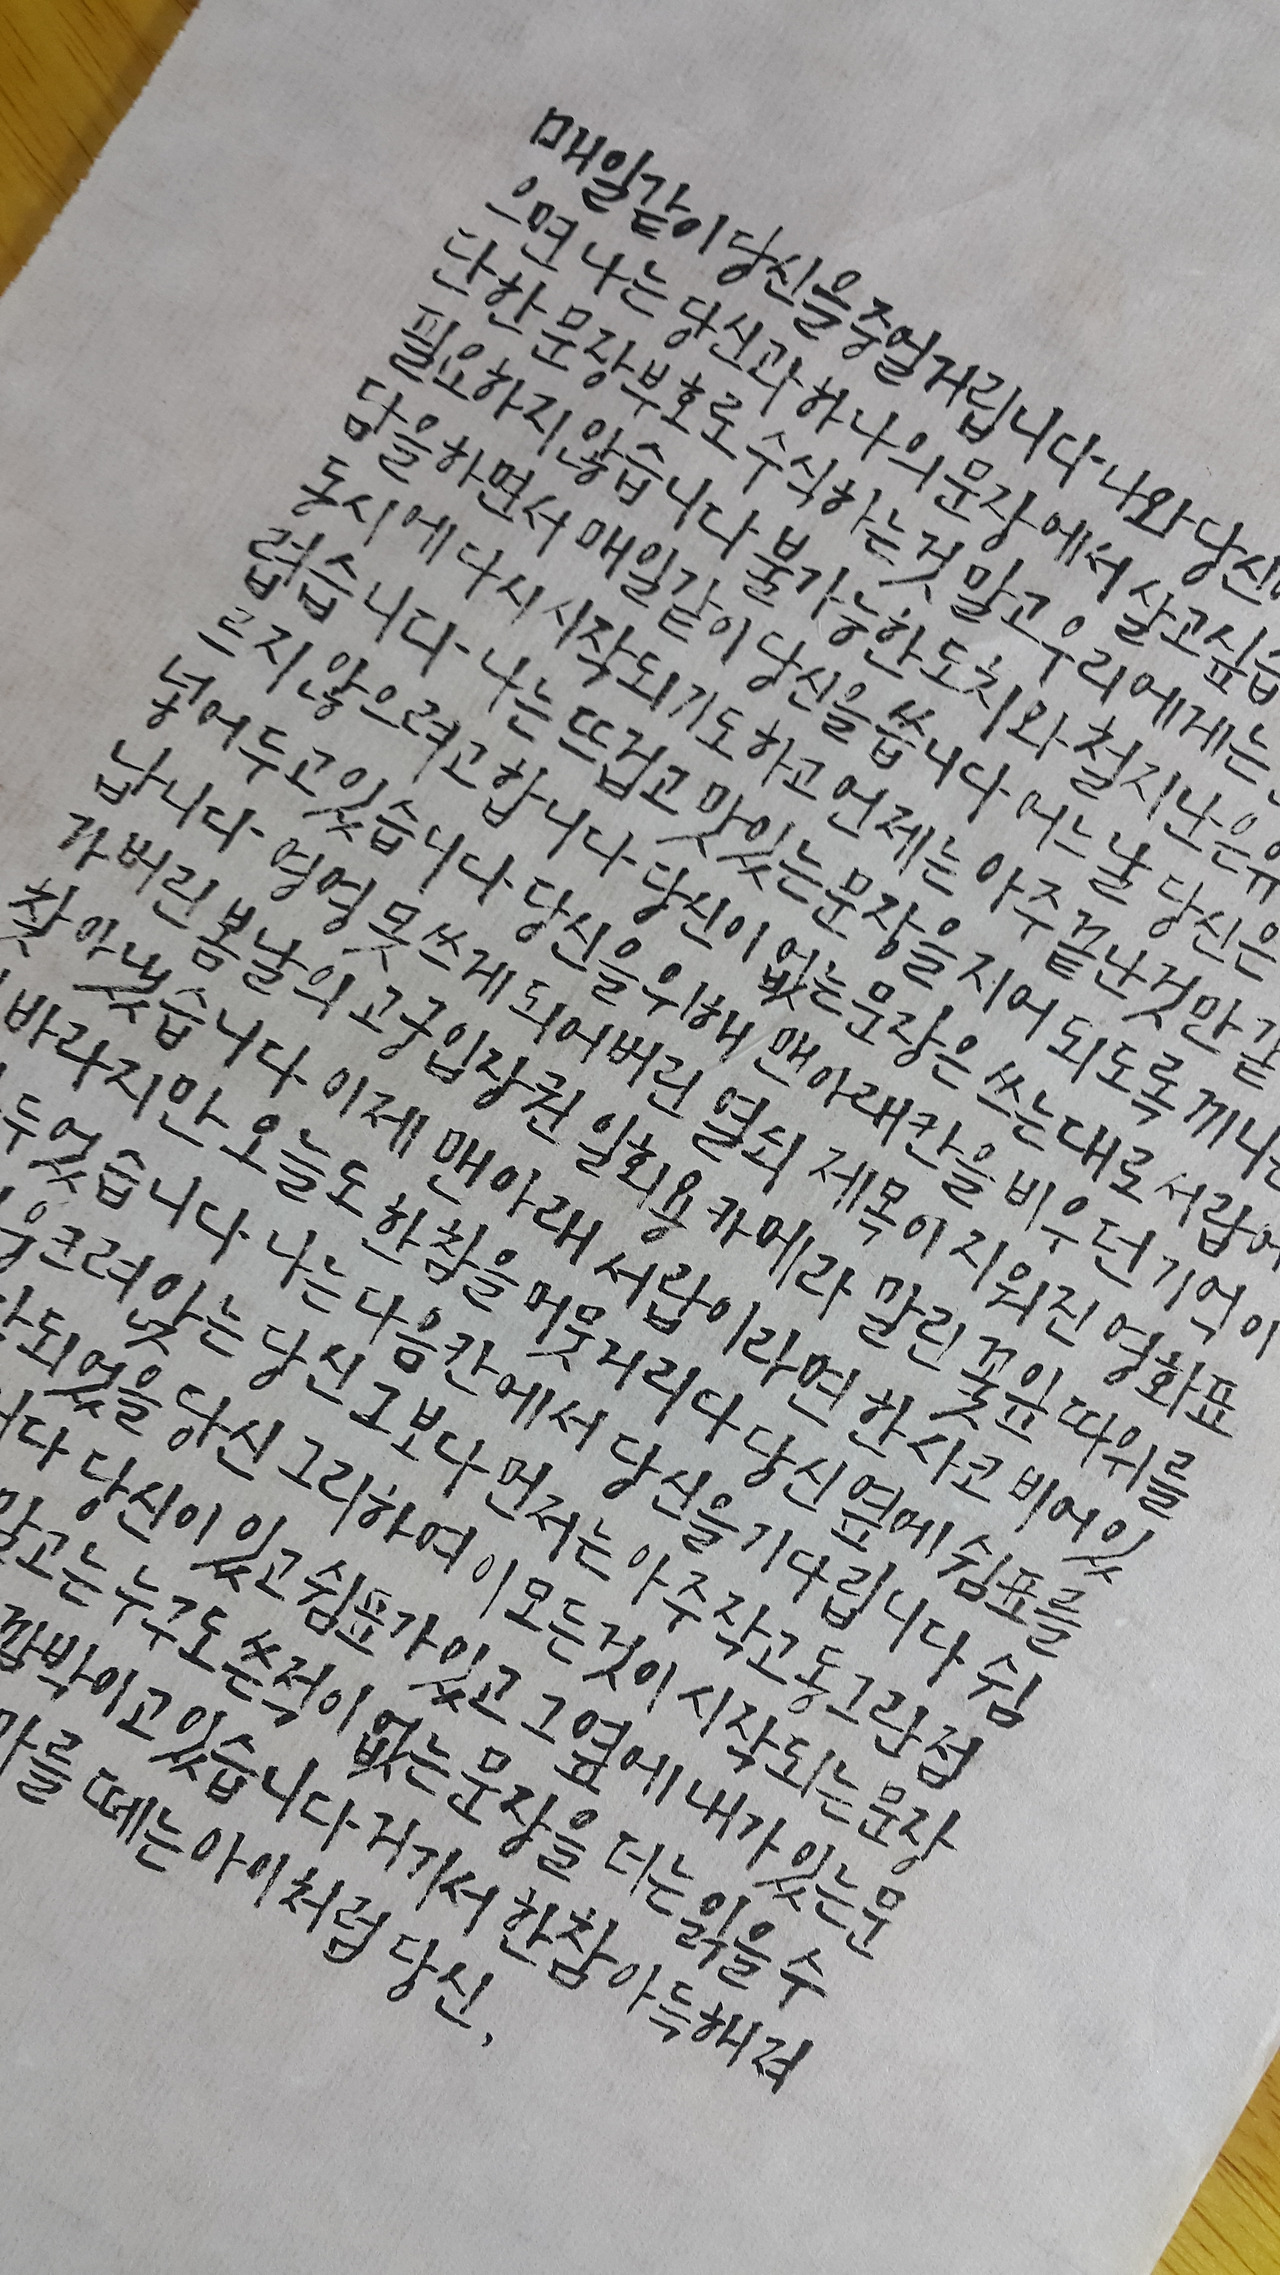 매일같이 당신을 중얼거립니다 나와 당신
으면 나는 당신과 하나의 문장에서 살고싶습
단한 문장부호로 수식하는것 말고 우리에게는
필요하지않습니다 불가능한 도치와 철지난은유
담을하면서 매일같이 당신을 씁니다 어느날 당신은
동시에 다시 시작되기도하고 언제는 아주 끝난것만 같
렵습니다 나는 뜨겁고 맛있는 문장을 지어 되도록 끼니
르지 않으려고합니다 당신이 없는 문장은 쓰는대로 서랍에
넣어 두고있습니다 당신을 위해 맨아래칸을 비우던 기억이
납니다 영영 못쓰게 되어버린 열쇠 제목이 지워진 영화표
가버린 봄날의 고궁입장권 일회용 카메라 말린 꽃잎 따위를
찾아냈습니다 이제 맨 아래 서랍이라면 한사코 비어있
바라지만 오늘도 한참을 머뭇거리다 당신 옆에 쉼표를
두었습니다 나는 다음칸에서 당신을 기다립니다 쉼
웅크려앉는 당신 그보다 먼저는 아주작고 동그란 점
되었을 당신 그리하여 이 모든것이 시작되는 문장
다 당신이 있고 쉼표가 있고 그 옆에 내가 있는 문
말고는 누구도 쓴적이 없는 문장을 더는 읽을 수
깜박이고 있습니다 거기서 한참 아득해져
마를 떼는 아이처럼 당신,